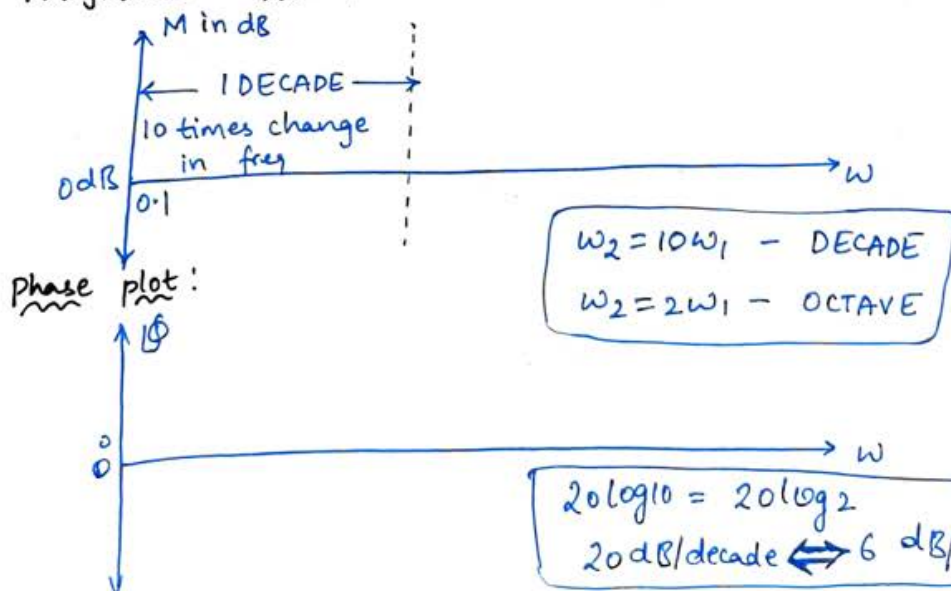 M in dB
1 DECADE
10 times change
in freq
0dB
0.1
ω
ω2 = 10ω1 - DECADE
ω2 = 2ω1 - OCTAVE
phase plot:
0°
ω
20log10 = 20log2
20dB/decade ⇔ 6 dB/